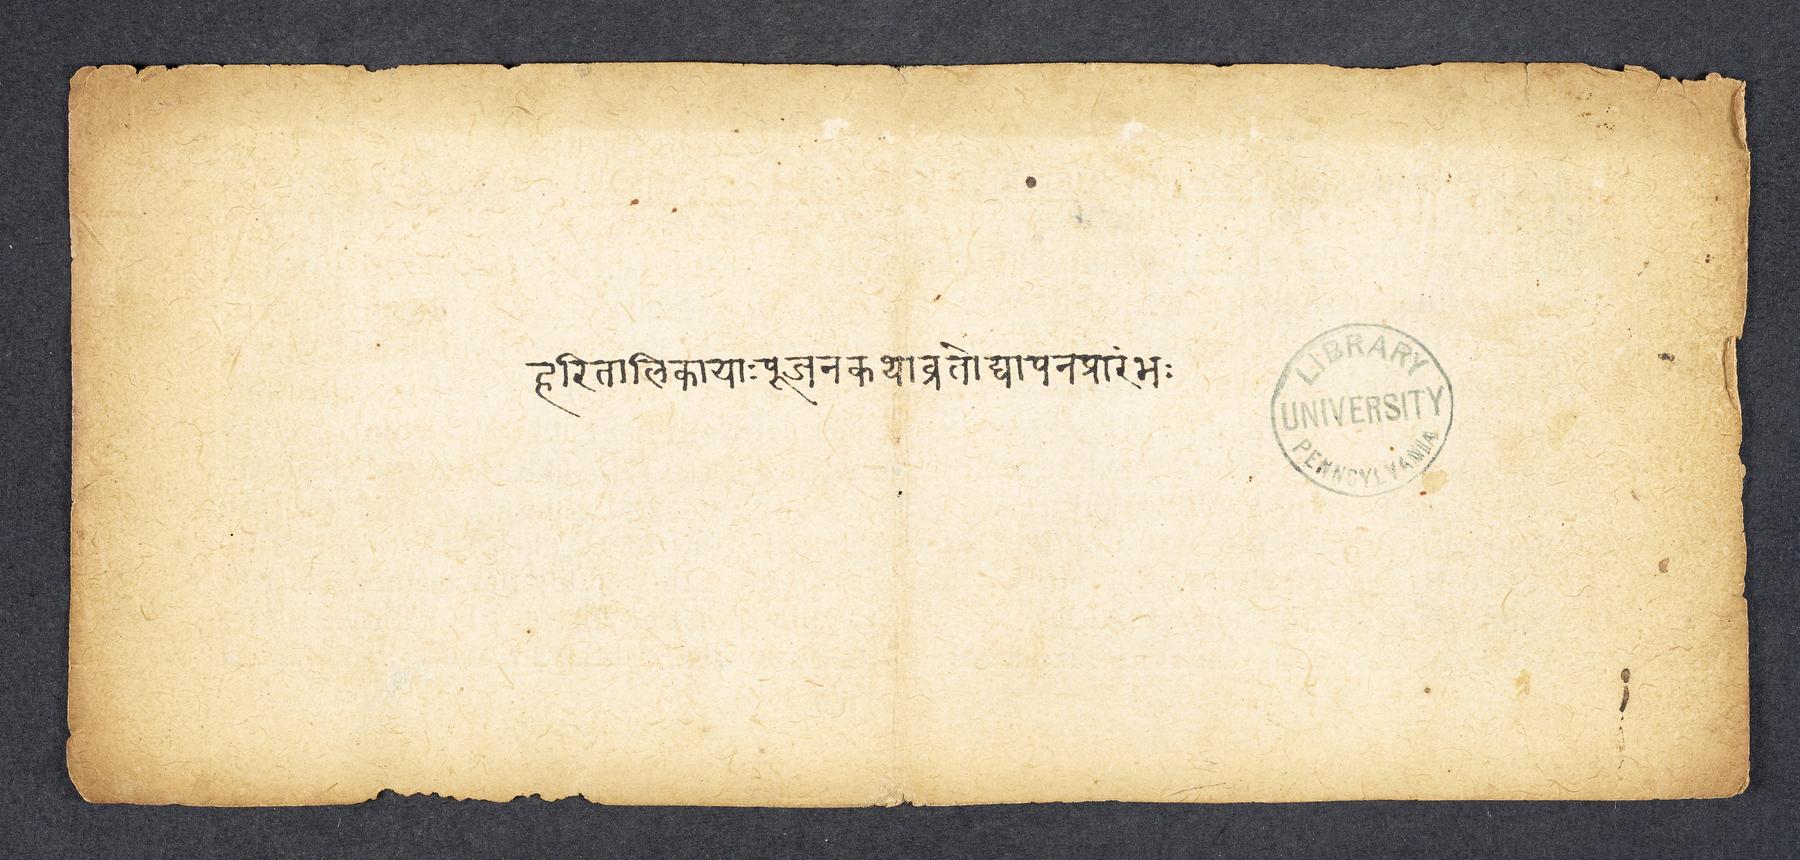 हरितालिकायाःपूजनकथाव्रतोद्यापनप्रारंभः
LIBRARY
UNIVERSITY
PENNSYLVANIA